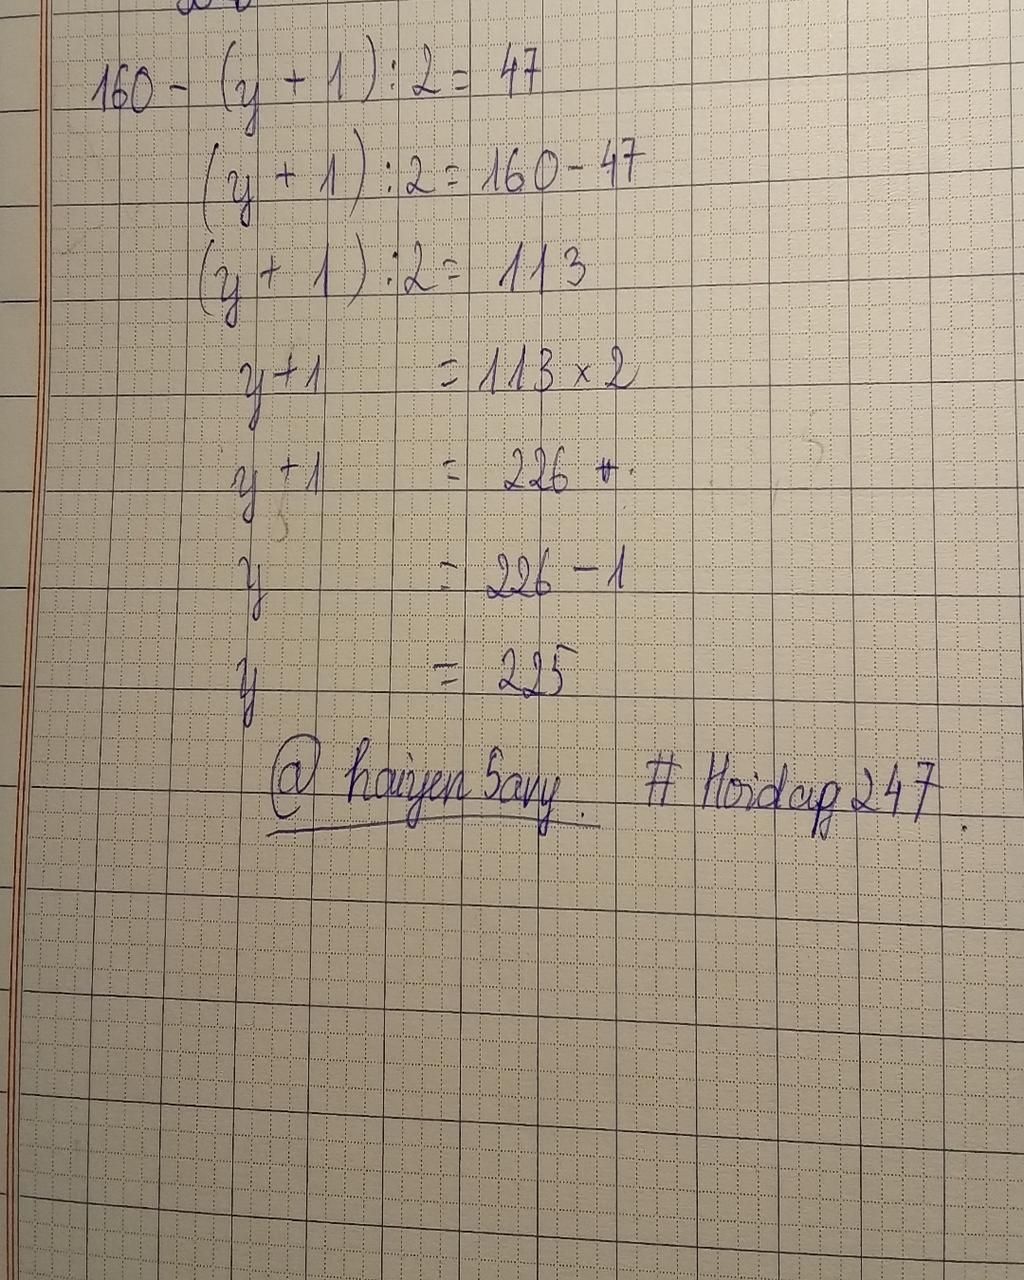 160 - (y + 1) : 2 = 47
(y + 1) : 2 = 160 - 47
(y + 1) : 2 = 113
y + 1 = 113 x 2
y + 1 = 226
y = 226 - 1
y = 225
@ haiyen Savy. # Hoidap 247.